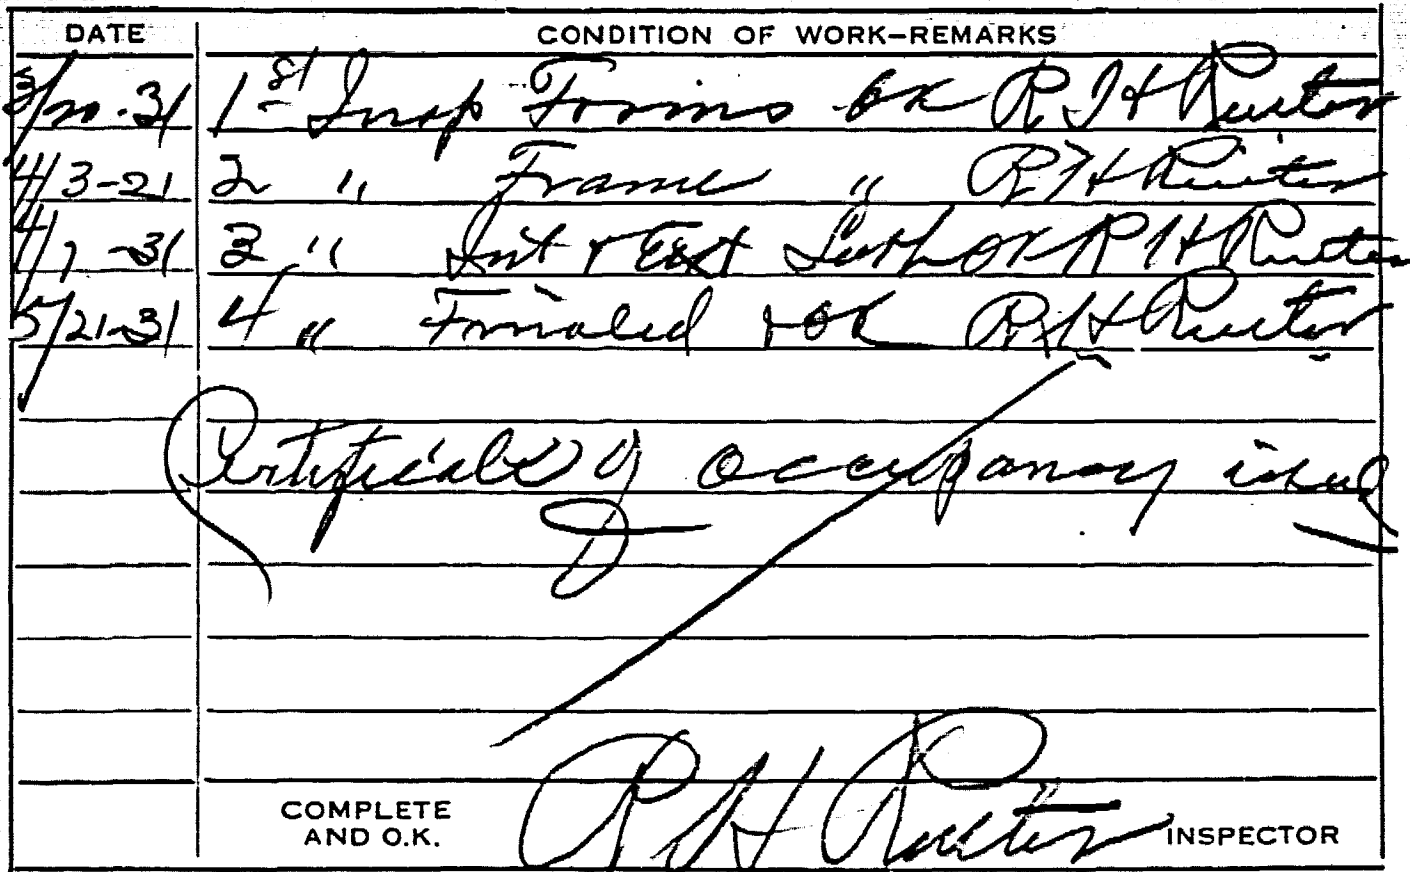 DATE CONDITION OF WORK—REMARKS
3/20-31 1st Insp Forms OK R H Ruiter
4/3-21 2 " Frame " R H Ruiter
4/7-31 3 " Int & Ext Lath OK R H Ruiter
5/21-31 4 " Finaled & OK R H Ruiter
Certificate of Occupancy issued
COMPLETE AND O.K. R H Ruiter INSPECTOR